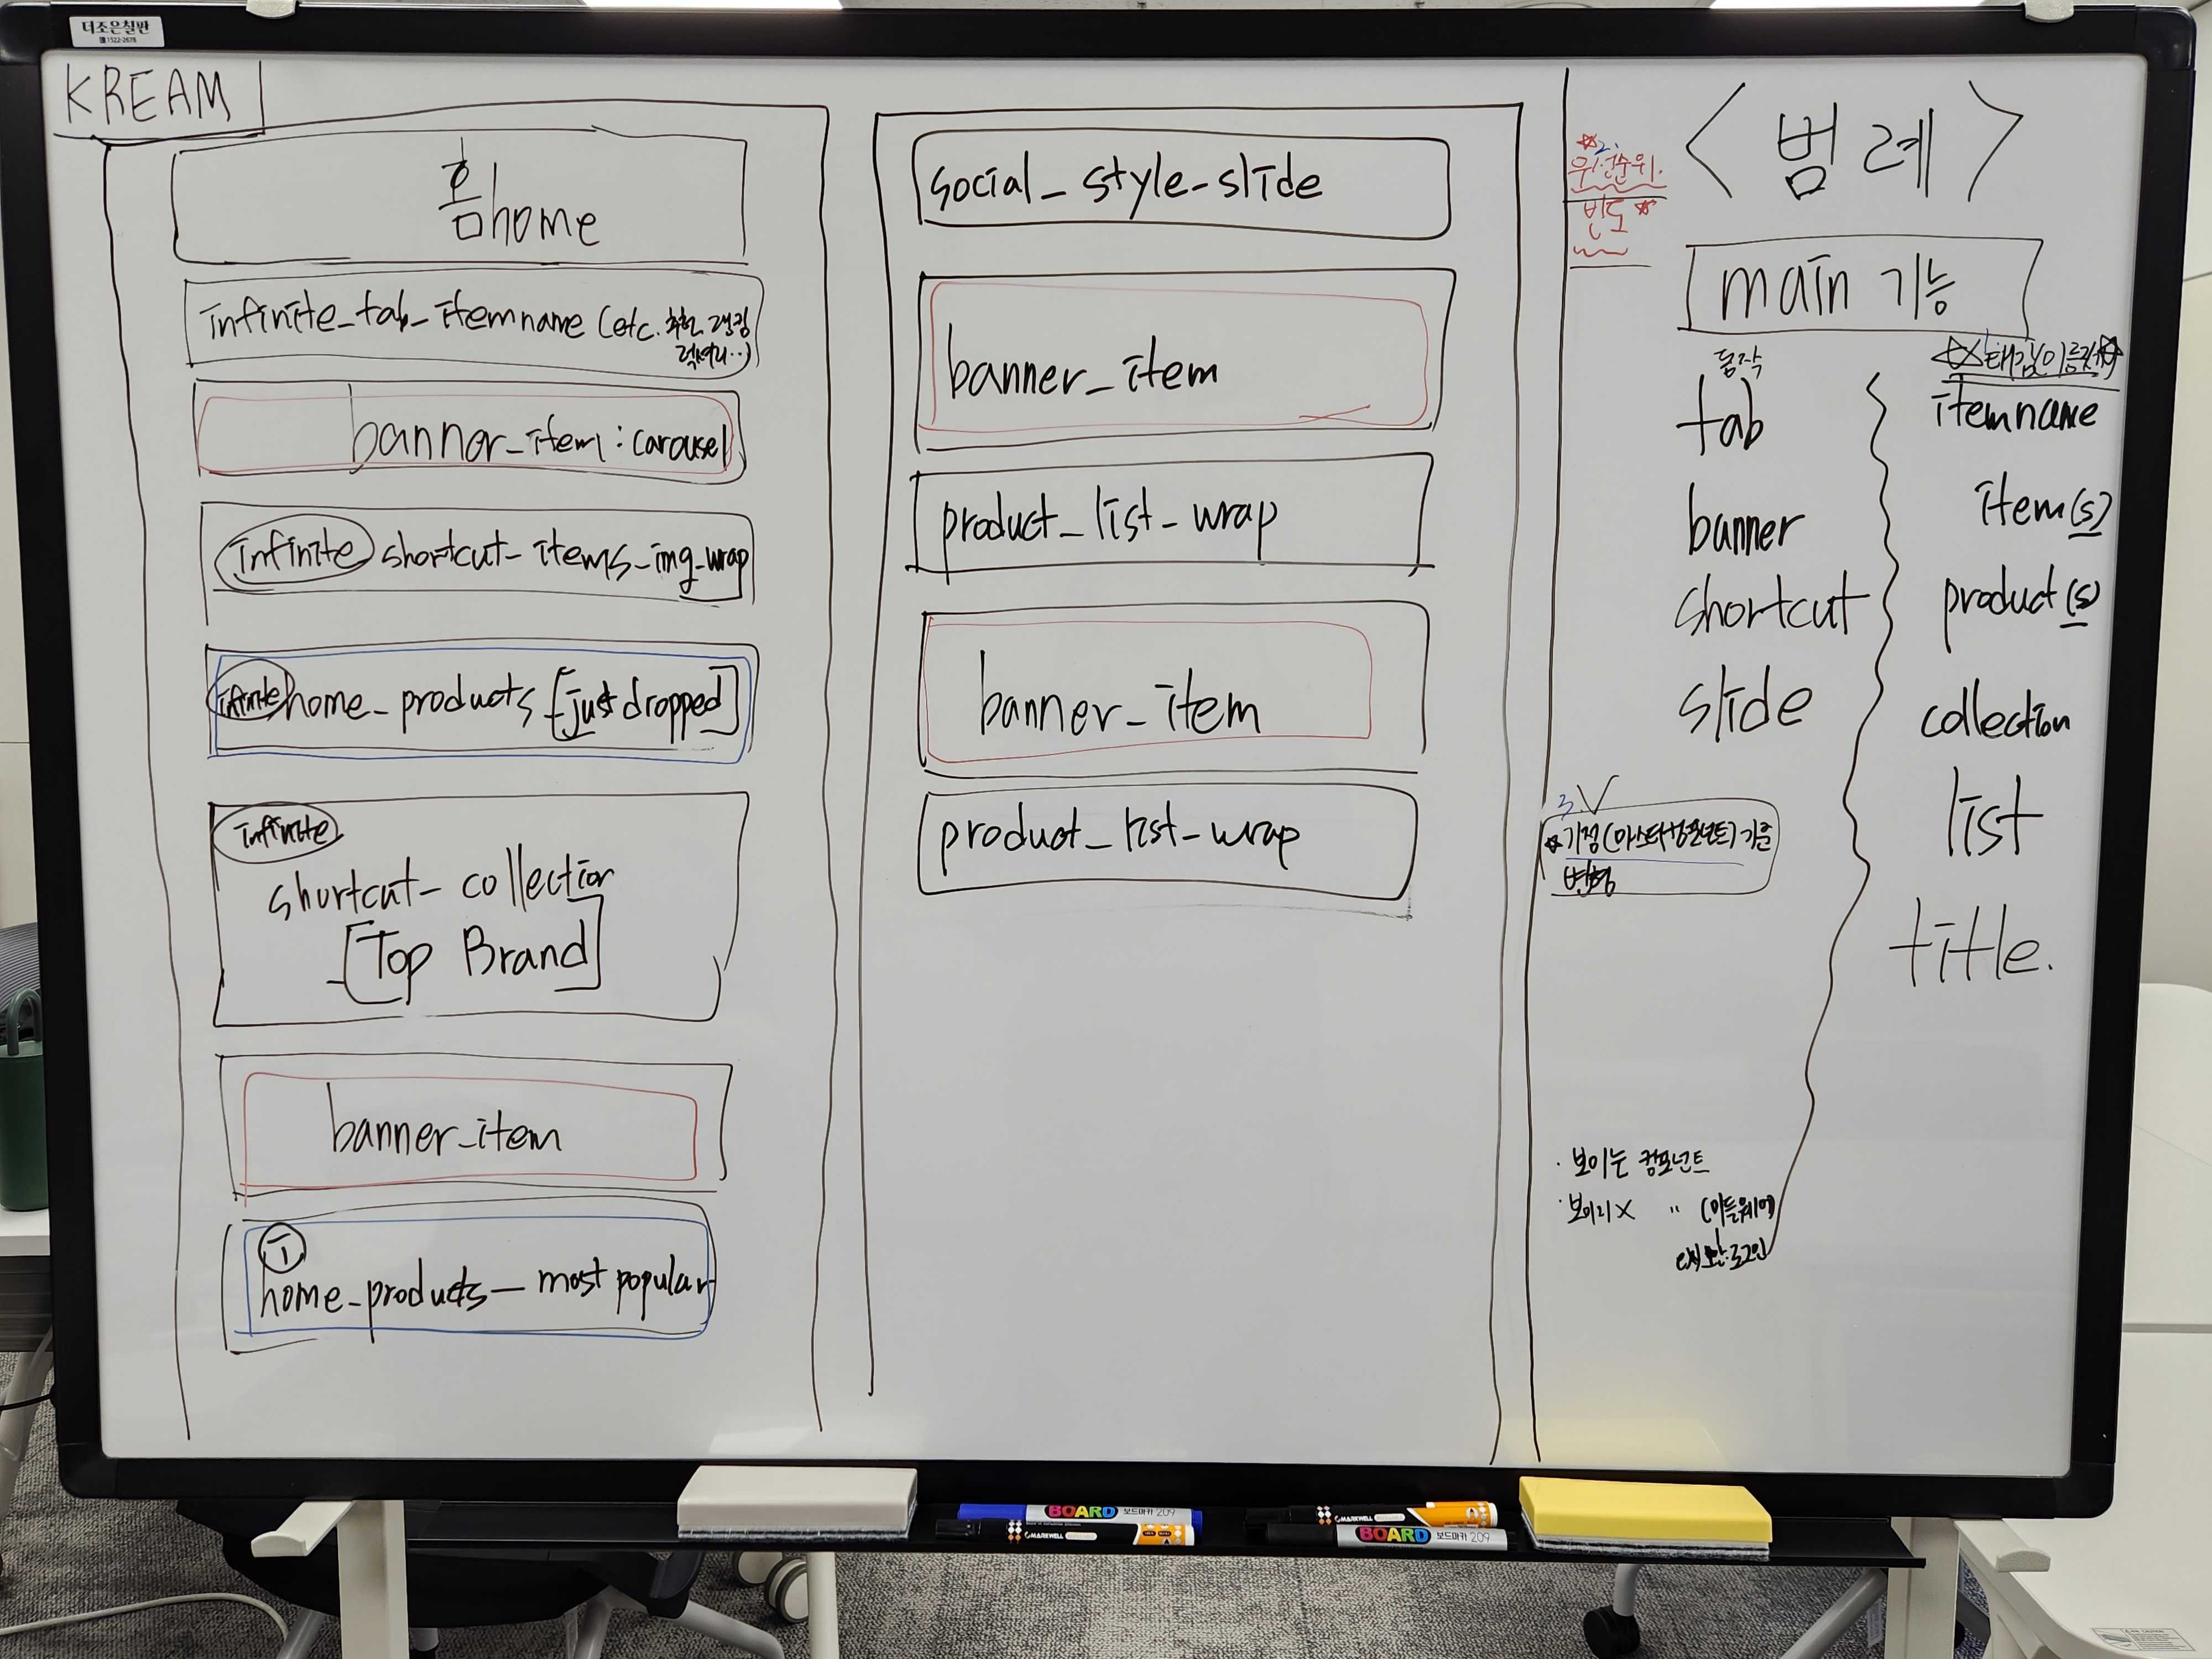 더조은칠판
☎1522-2678
KREAM
홈home
infinite_tab_itemname (etc. 추천 랭킹
럭셔리..)
banner_item : carousel
infinite shortcut_items_img_wrap
infinite home_products [just dropped]
infinite
shortcut_collection
[Top Brand]
banner_item
i
home_products_most popular
social_style_slide
banner_item
product_list_wrap
banner_item
product_list_wrap
☆2.
우선순위.
빈도☆
<범례>
main 기능
동작
tab
banner
shortcut
slide
itemname
item(s)
product(s)
collection
list
title.
3.V
☆기점(마스터컴포넌트)기준
변형
· 보이는 컴포넌트
· 보이지X " (미들웨어)
ex) 보안.로그인
BOARD 보드마카 209
MARKWELL
MARKWELL
BOARD 보드마카 209